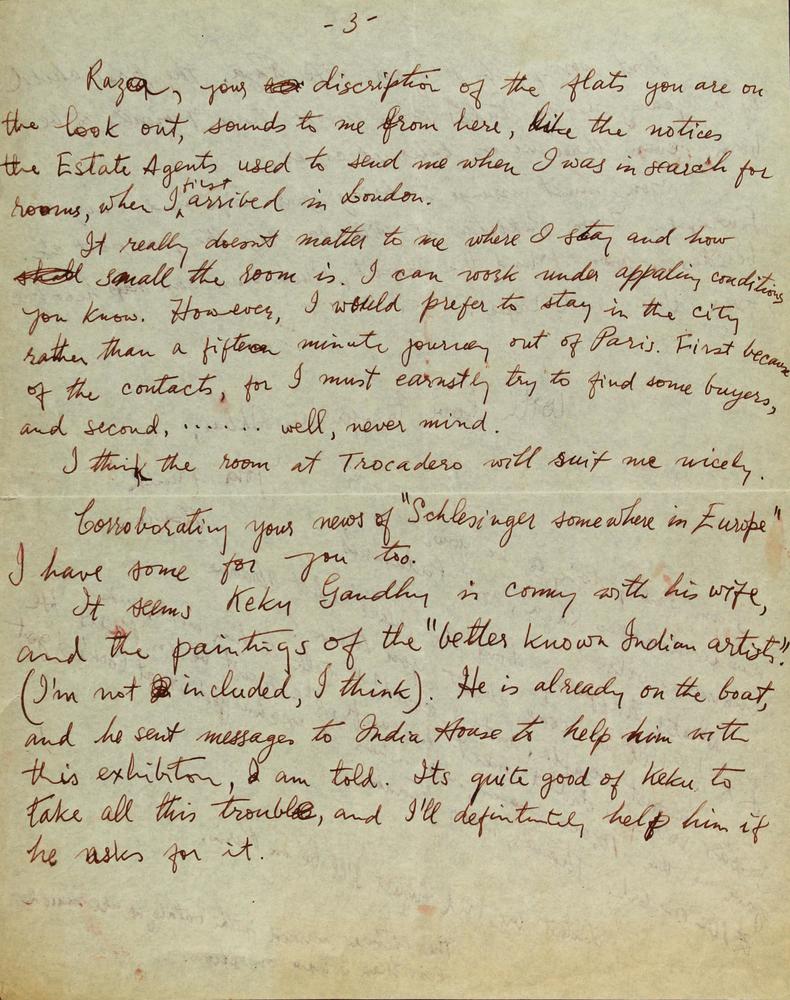 - 3 -
Raza, your discription of the flats you are on
the look out, sounds to me from here, like the notices
the Estate Agents used to send me when I was in search for
rooms, when I first arrived in London.
It really doesnt matter to me where I stay and how
small the room is. I can work under appaling conditions
you know. However, I would prefer to stay in the city
rather than a fifteen minute journey out of Paris. First because
of the contacts, for I must earnstly try to find some buyers,
and second, ....... well, never mind.
I think the room at Trocadero will suit me nicely.
Corroborating your news of "Schlesinger somewhere in Europe"
I have some for you too.
It seems Keku Gandhy is coming with his wife,
and the paintings of the "better known Indian artists".
(I'm not included, I think). He is already on the boat,
and he sent messages to India House to help him with
this exhibiton, I am told. Its quite good of Keku to
take all this trouble, and I'll definitely help him if
he asks for it.